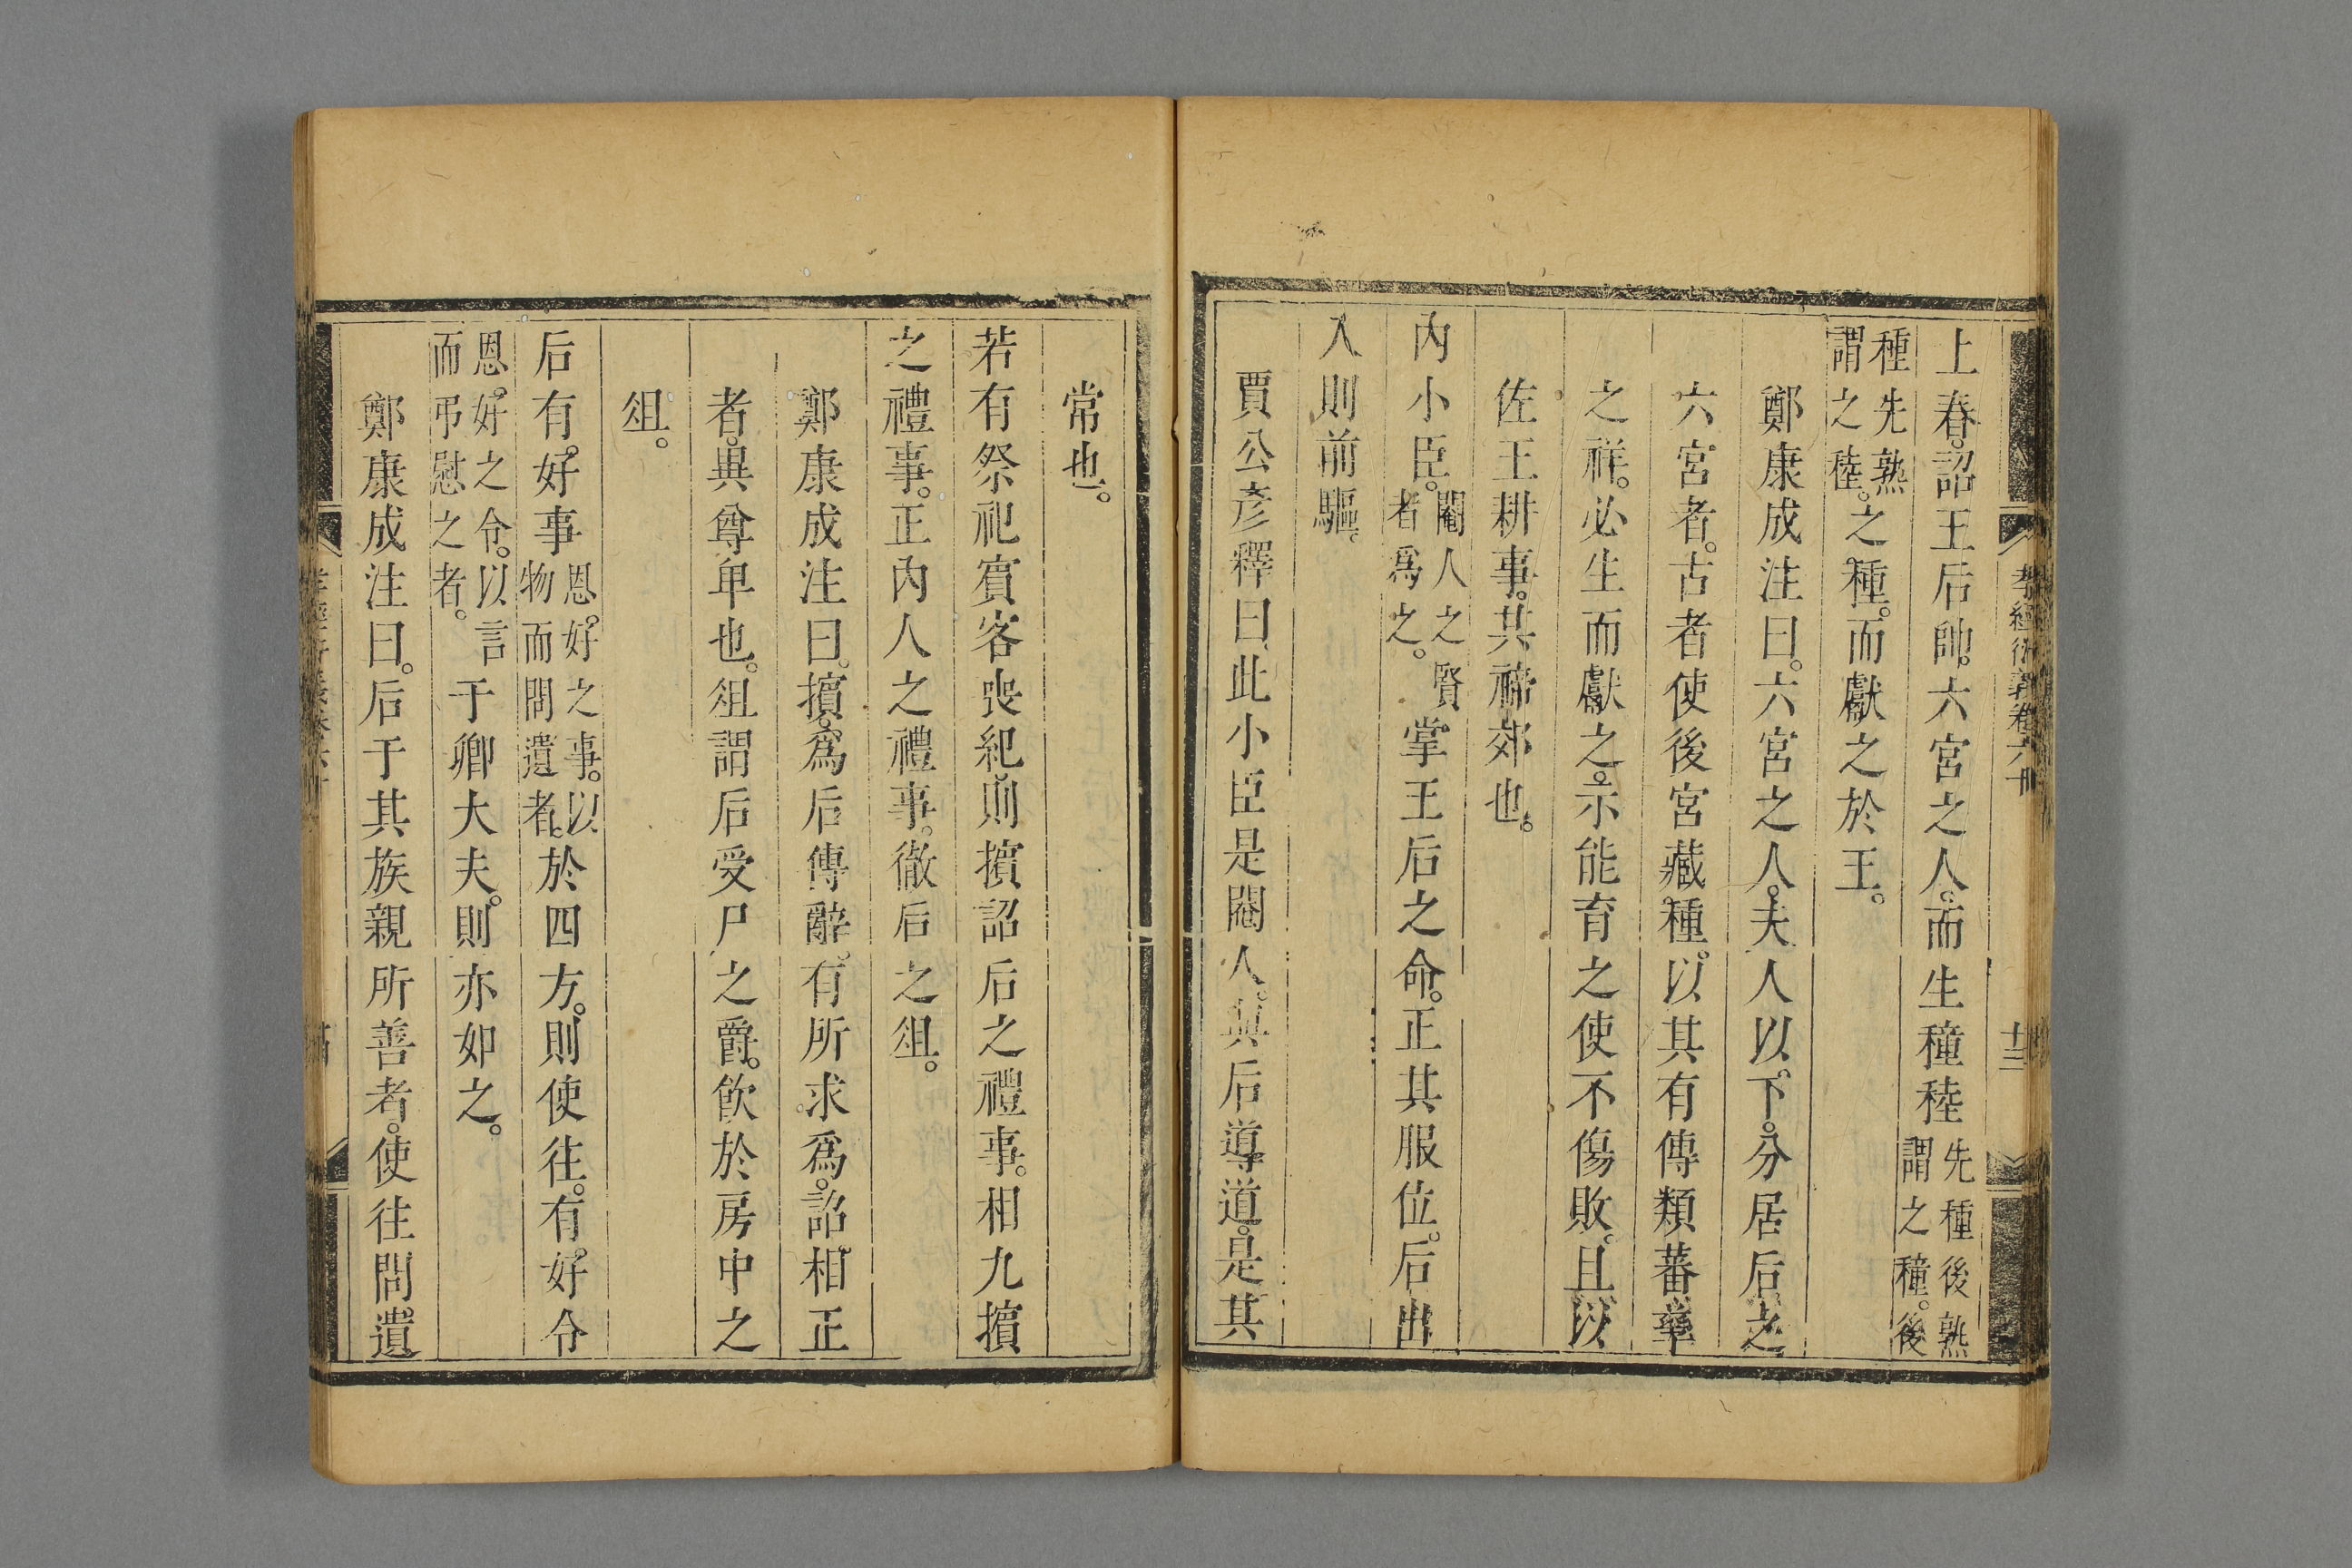 孝經衍義卷六十
十三
上春。詔王后帥。六宮之人。而生穜稑先種後熟謂之穜。後
種先熟謂之稑。之種。而獻之於王。
鄭康成注曰。六宮之人。夫人以。下。分居后之
六宮者。古者使後宮藏種。以其有傳類蕃孳
之祥。必生而獻之。示能育之使不傷敗。且以
佐王耕事。共禘郊也。
內小臣。閽人之賢者為之。掌王后之命。正其服位。后出
入則前驅。
賈公彥釋曰。此小臣是閹人。與后導道。是其
常也。
若有祭祀賓客喪紀則擯詔后之禮事。相九擯
之禮事。正內人之禮事。徹后之俎。
鄭康成注曰。擯。為后傳辭。有所求為。詔相正
者。異尊卑也。俎謂后受尸之爵。飲於房中之
俎。
后有。好事恩。好之事。以物而問遺者。於四方。則使往。有。好令
恩。好之令。以言而弔慰之者。于卿大夫。則亦如之。
鄭康成注曰。后于其族親所善者。使往問遺